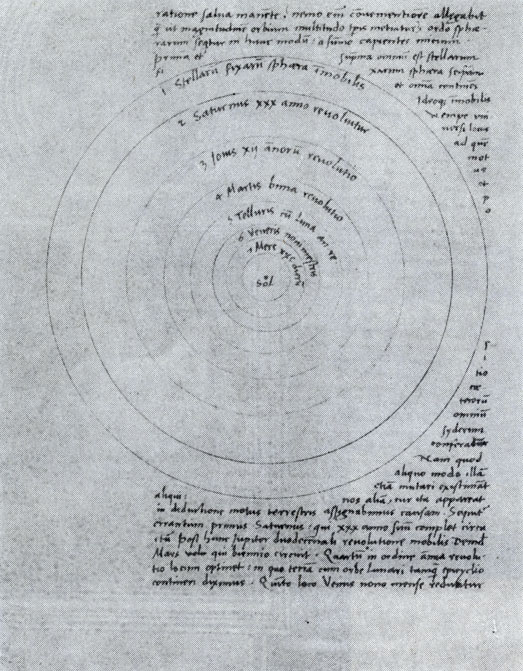 ratione salva manēte, nemo em̄ cōvenientiorē allegabit
q̄ ut magnitudinē orbium multitudo tp̄is metiatur, ordo sphæ-
rarum sequitur in hunc modū: a sum̄o capientes initium.
prima et suprema omniū est stellarum
fi xarum sphæra seipsam
et omnia continens
Ideoq̧ imobilis
nempe uni
versi locus
ad quē
mot
us
et
p
o
1 Stellarū fixarū sphæra im̄obilis
2 Saturnus xxx anno revolvitur
3 Iovis xij annorū revolutio
4 Martis bima revolutio
5 Telluris cū luna an re
6 Veneris nonimestris
7 Merc xxc dierū
Sol
s
i
tio
cæ
terorū
omniū
syderum
conferatur
Nam quod
aliquo modo illā
etiā mutari existimāt
aliqui: nos aliā, cur ita appareat
in deductione motus terrestris assignabimus causam. Sequitur
errantium primus Saturnus: qui xxx anno suū complet circu
itū Post hunc Jupiter duodecennali revolutione mobilis Deinde
Mars velo qui biennio circuit. Quartū in ordine annua revolu-
tio locum optinet: in quo terrā cum orbe lunari tamq̄ epicyclio
contineri diximus. Quinto loco Venus nono mense reducitur